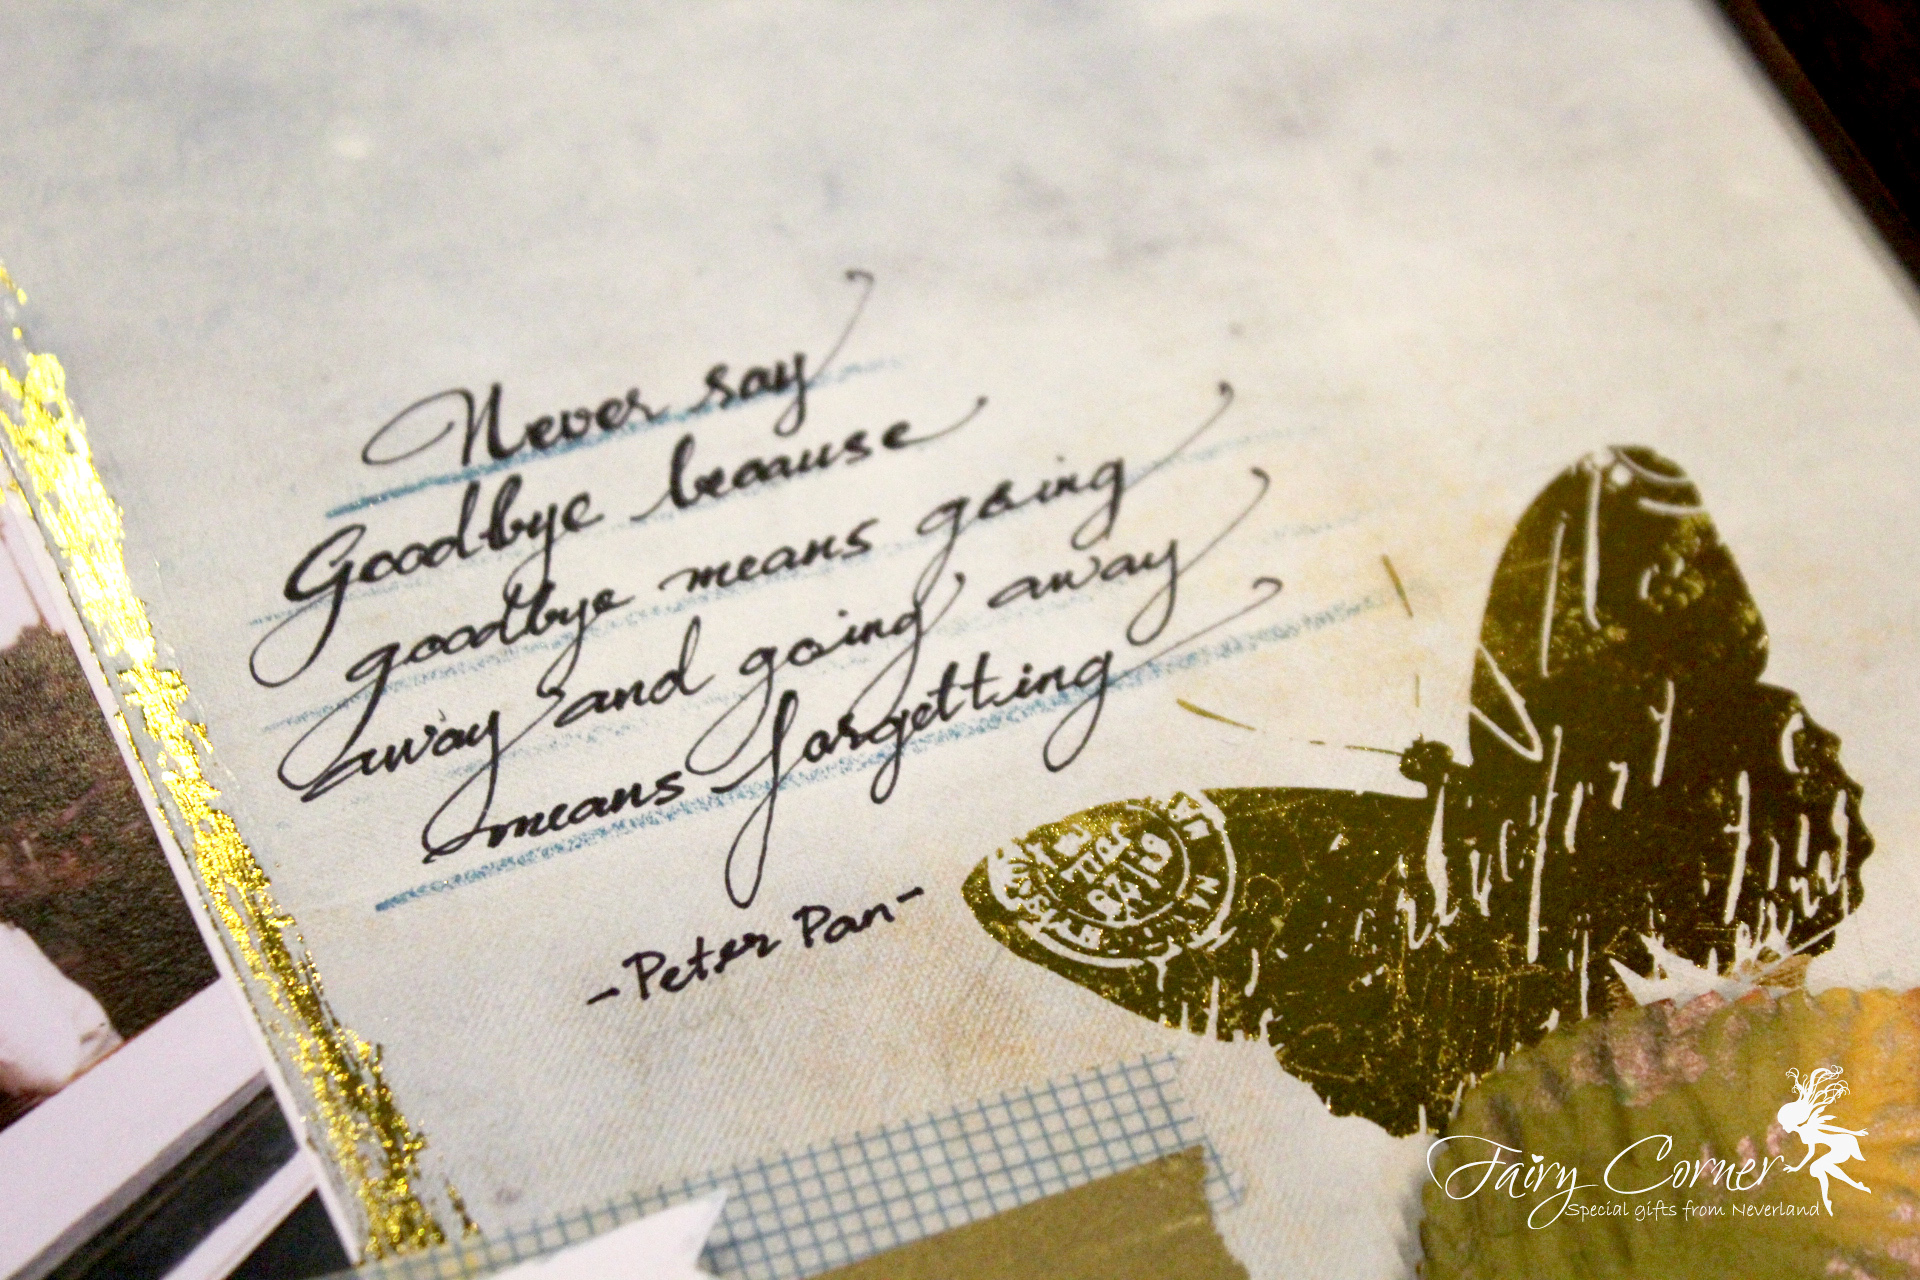 Never say
Goodbye because
goodbye means going
away and going away
means forgetting
-Peter Pan-
Fairy Corner
Special gifts from Neverland